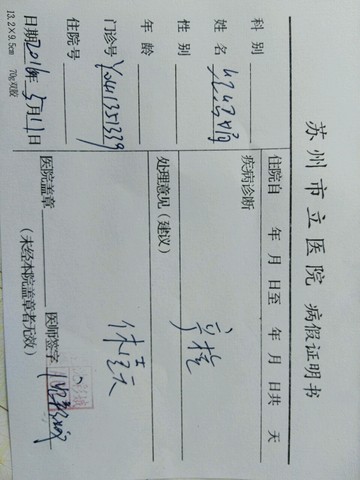 苏州市立医院 病假证明书
科别
姓名
性别
年龄
门诊号
住院号
日期2016年5月11日
13.2×9.5cm 70g双胶
住院自 年 月 日至 年 月 日共 天
疾病诊断
处理意见(建议)
休壹天
医院盖章
医师签字
(未经本院盖章者无效)